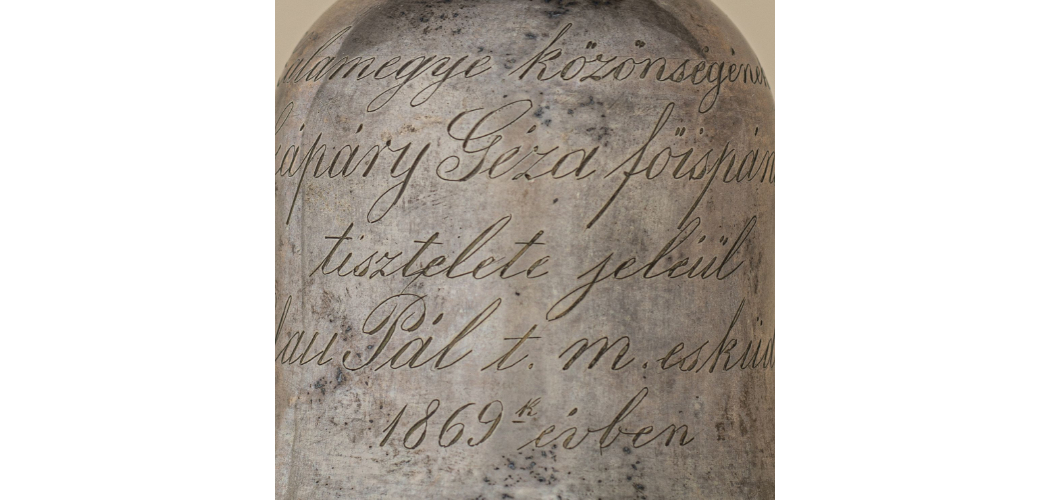 alamegye közönségéne
ápáry Géza főispán
tisztelete jeléül
Pál t. m. eskü
1869k évben